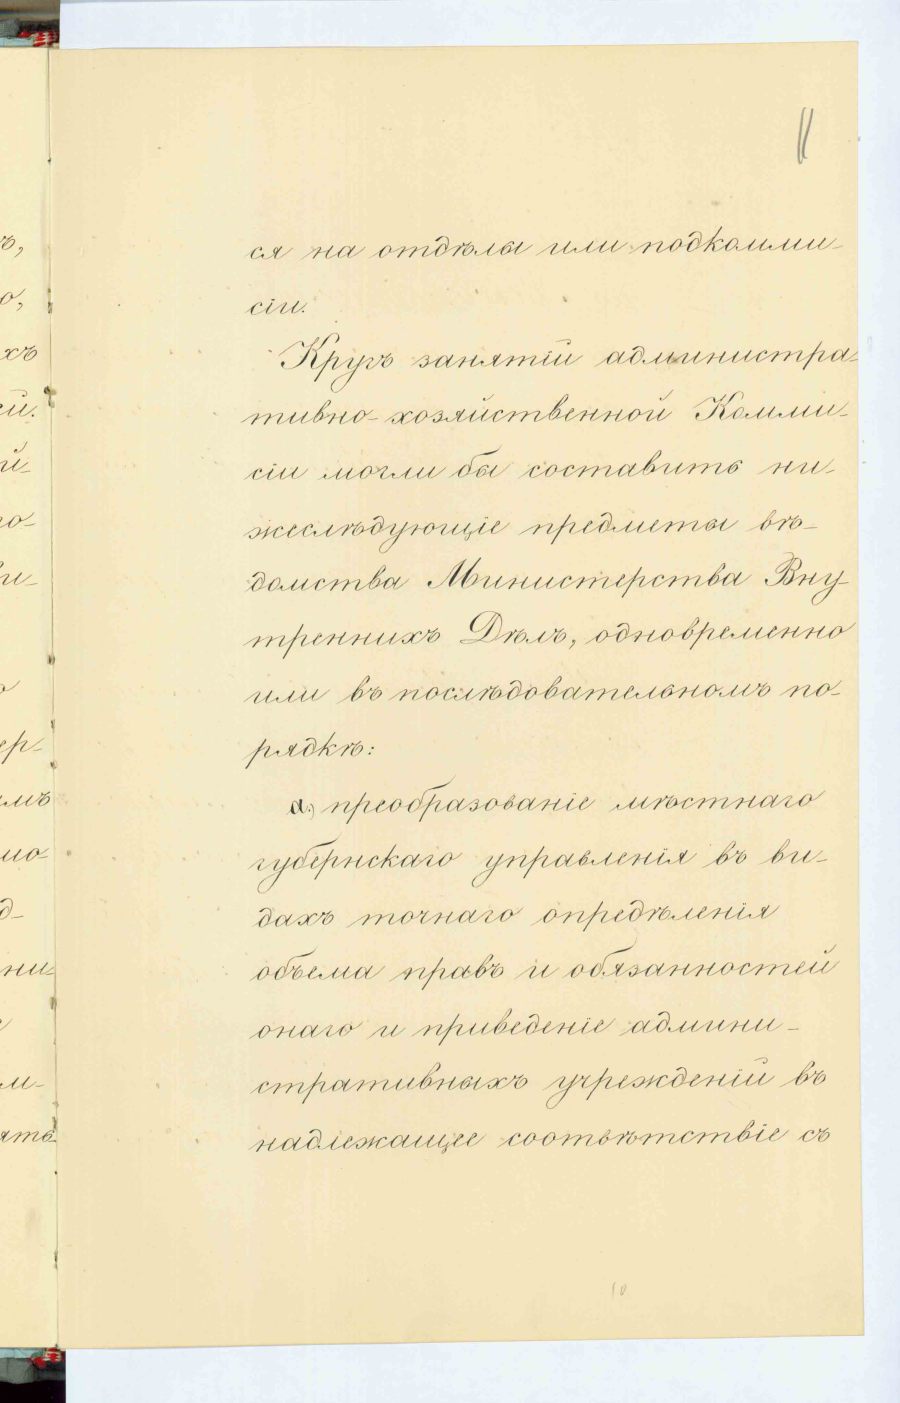 11
ся на отдѣлы или подкомми-
сіи.
Кругъ занятій администра-
тивно-хозяйственной Комми-
сіи могли бы составить ни-
жеслѣдующіе предметы вѣ-
домства Министерства Вну-
треннихъ Дѣлъ, одновременно
или въ послѣдовательномъ по-
рядкѣ:
а) преобразованіе мѣстнаго
губернскаго управленія въ ви-
дахъ точнаго опредѣленія
объема правъ и обязанностей
онаго и приведеніе админи-
стративныхъ учрежденій въ
надлежащее соотвѣтствіе съ
10